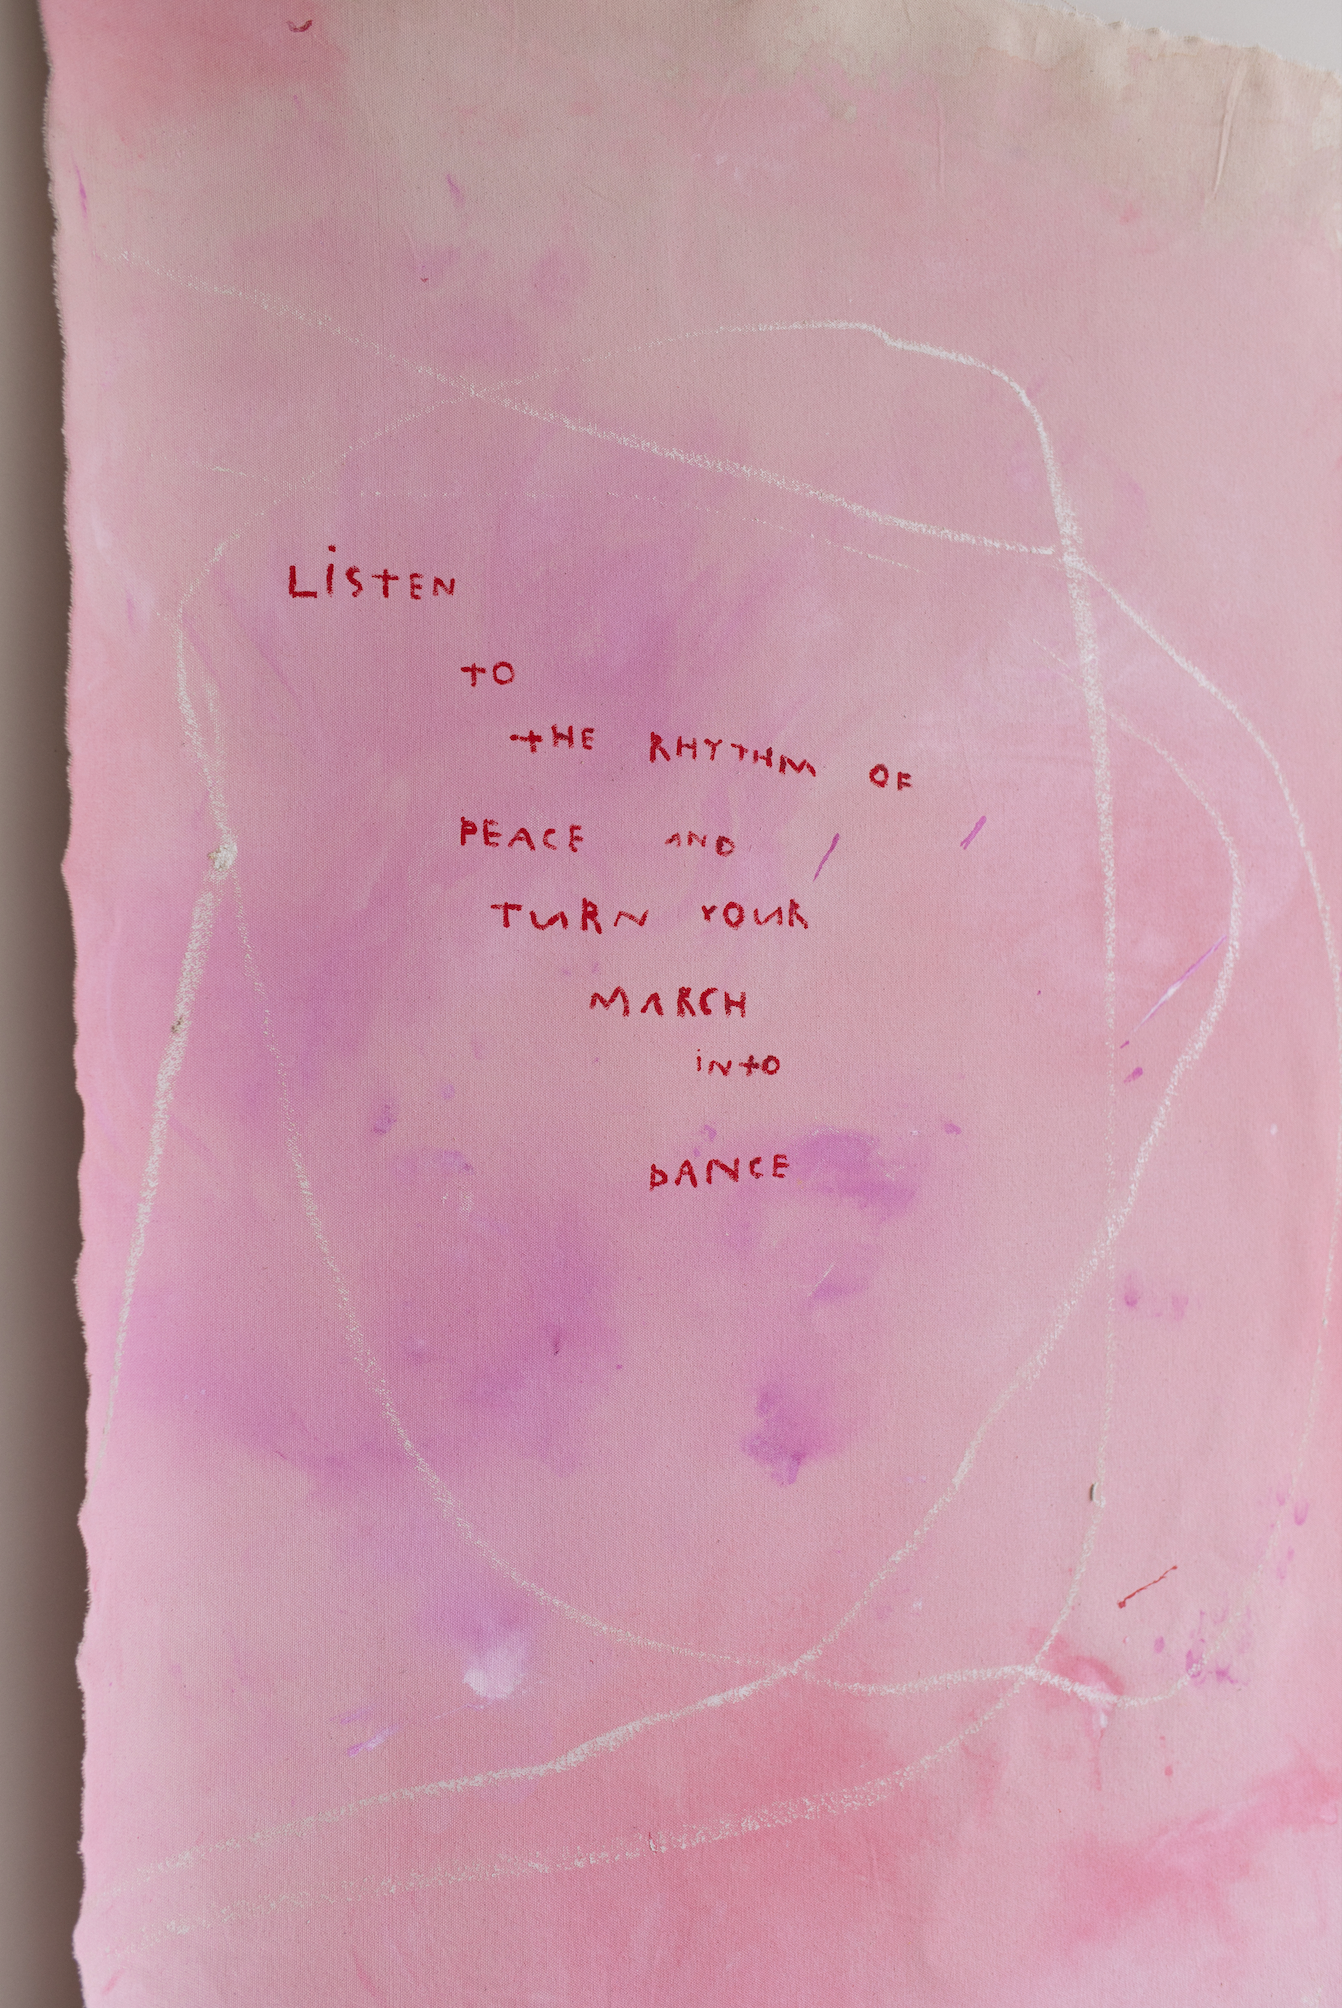 LiSTEN
TO
THE RHYTHM OF
PEACE AND
TURN YOUR
MARCH
iNTO
DANCE